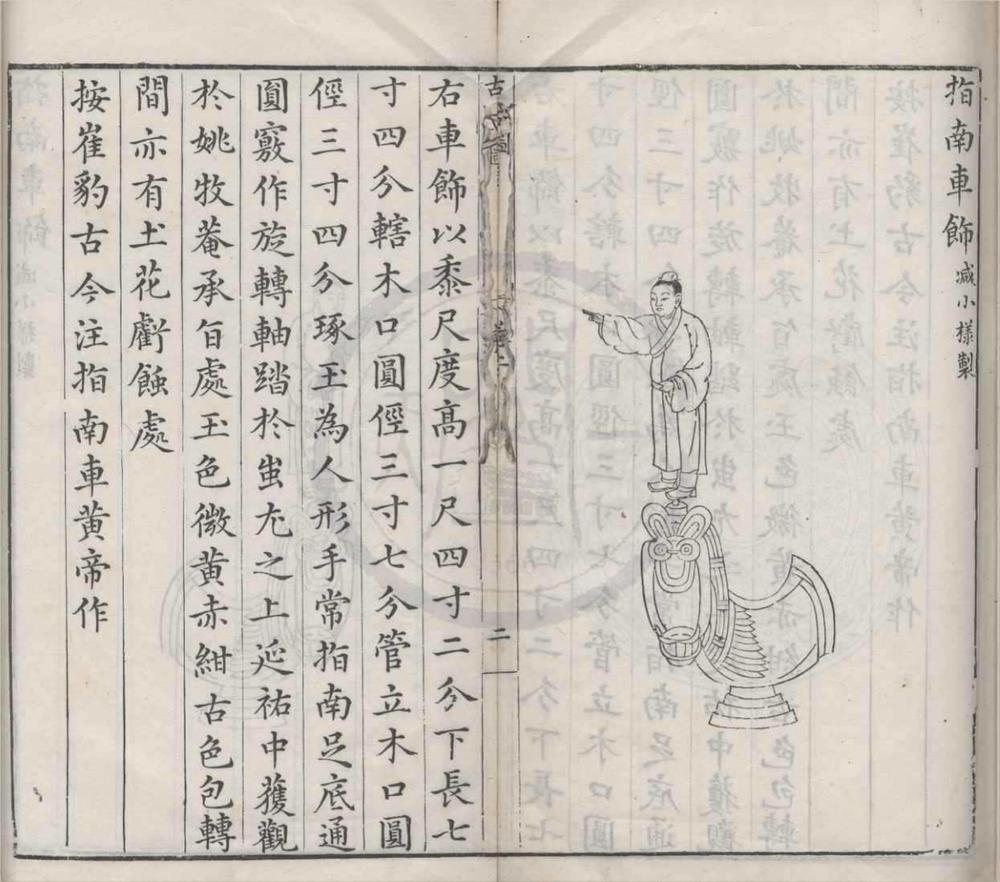 指南車飾減小樣製
古玉圖 卷上 二
右車飾以黍尺度高一尺四寸二分下長七
寸四分轄木口圓徑三寸七分管立木口圓
徑三寸四分琢玉為人形手常指南足底通
圓竅作旋轉軸踏於蚩尤之上延祐中獲觀
於姚牧菴承旨處玉色微黃赤紺古色包轉
間亦有土花虧蝕處
按崔豹古今注指南車黃帝作